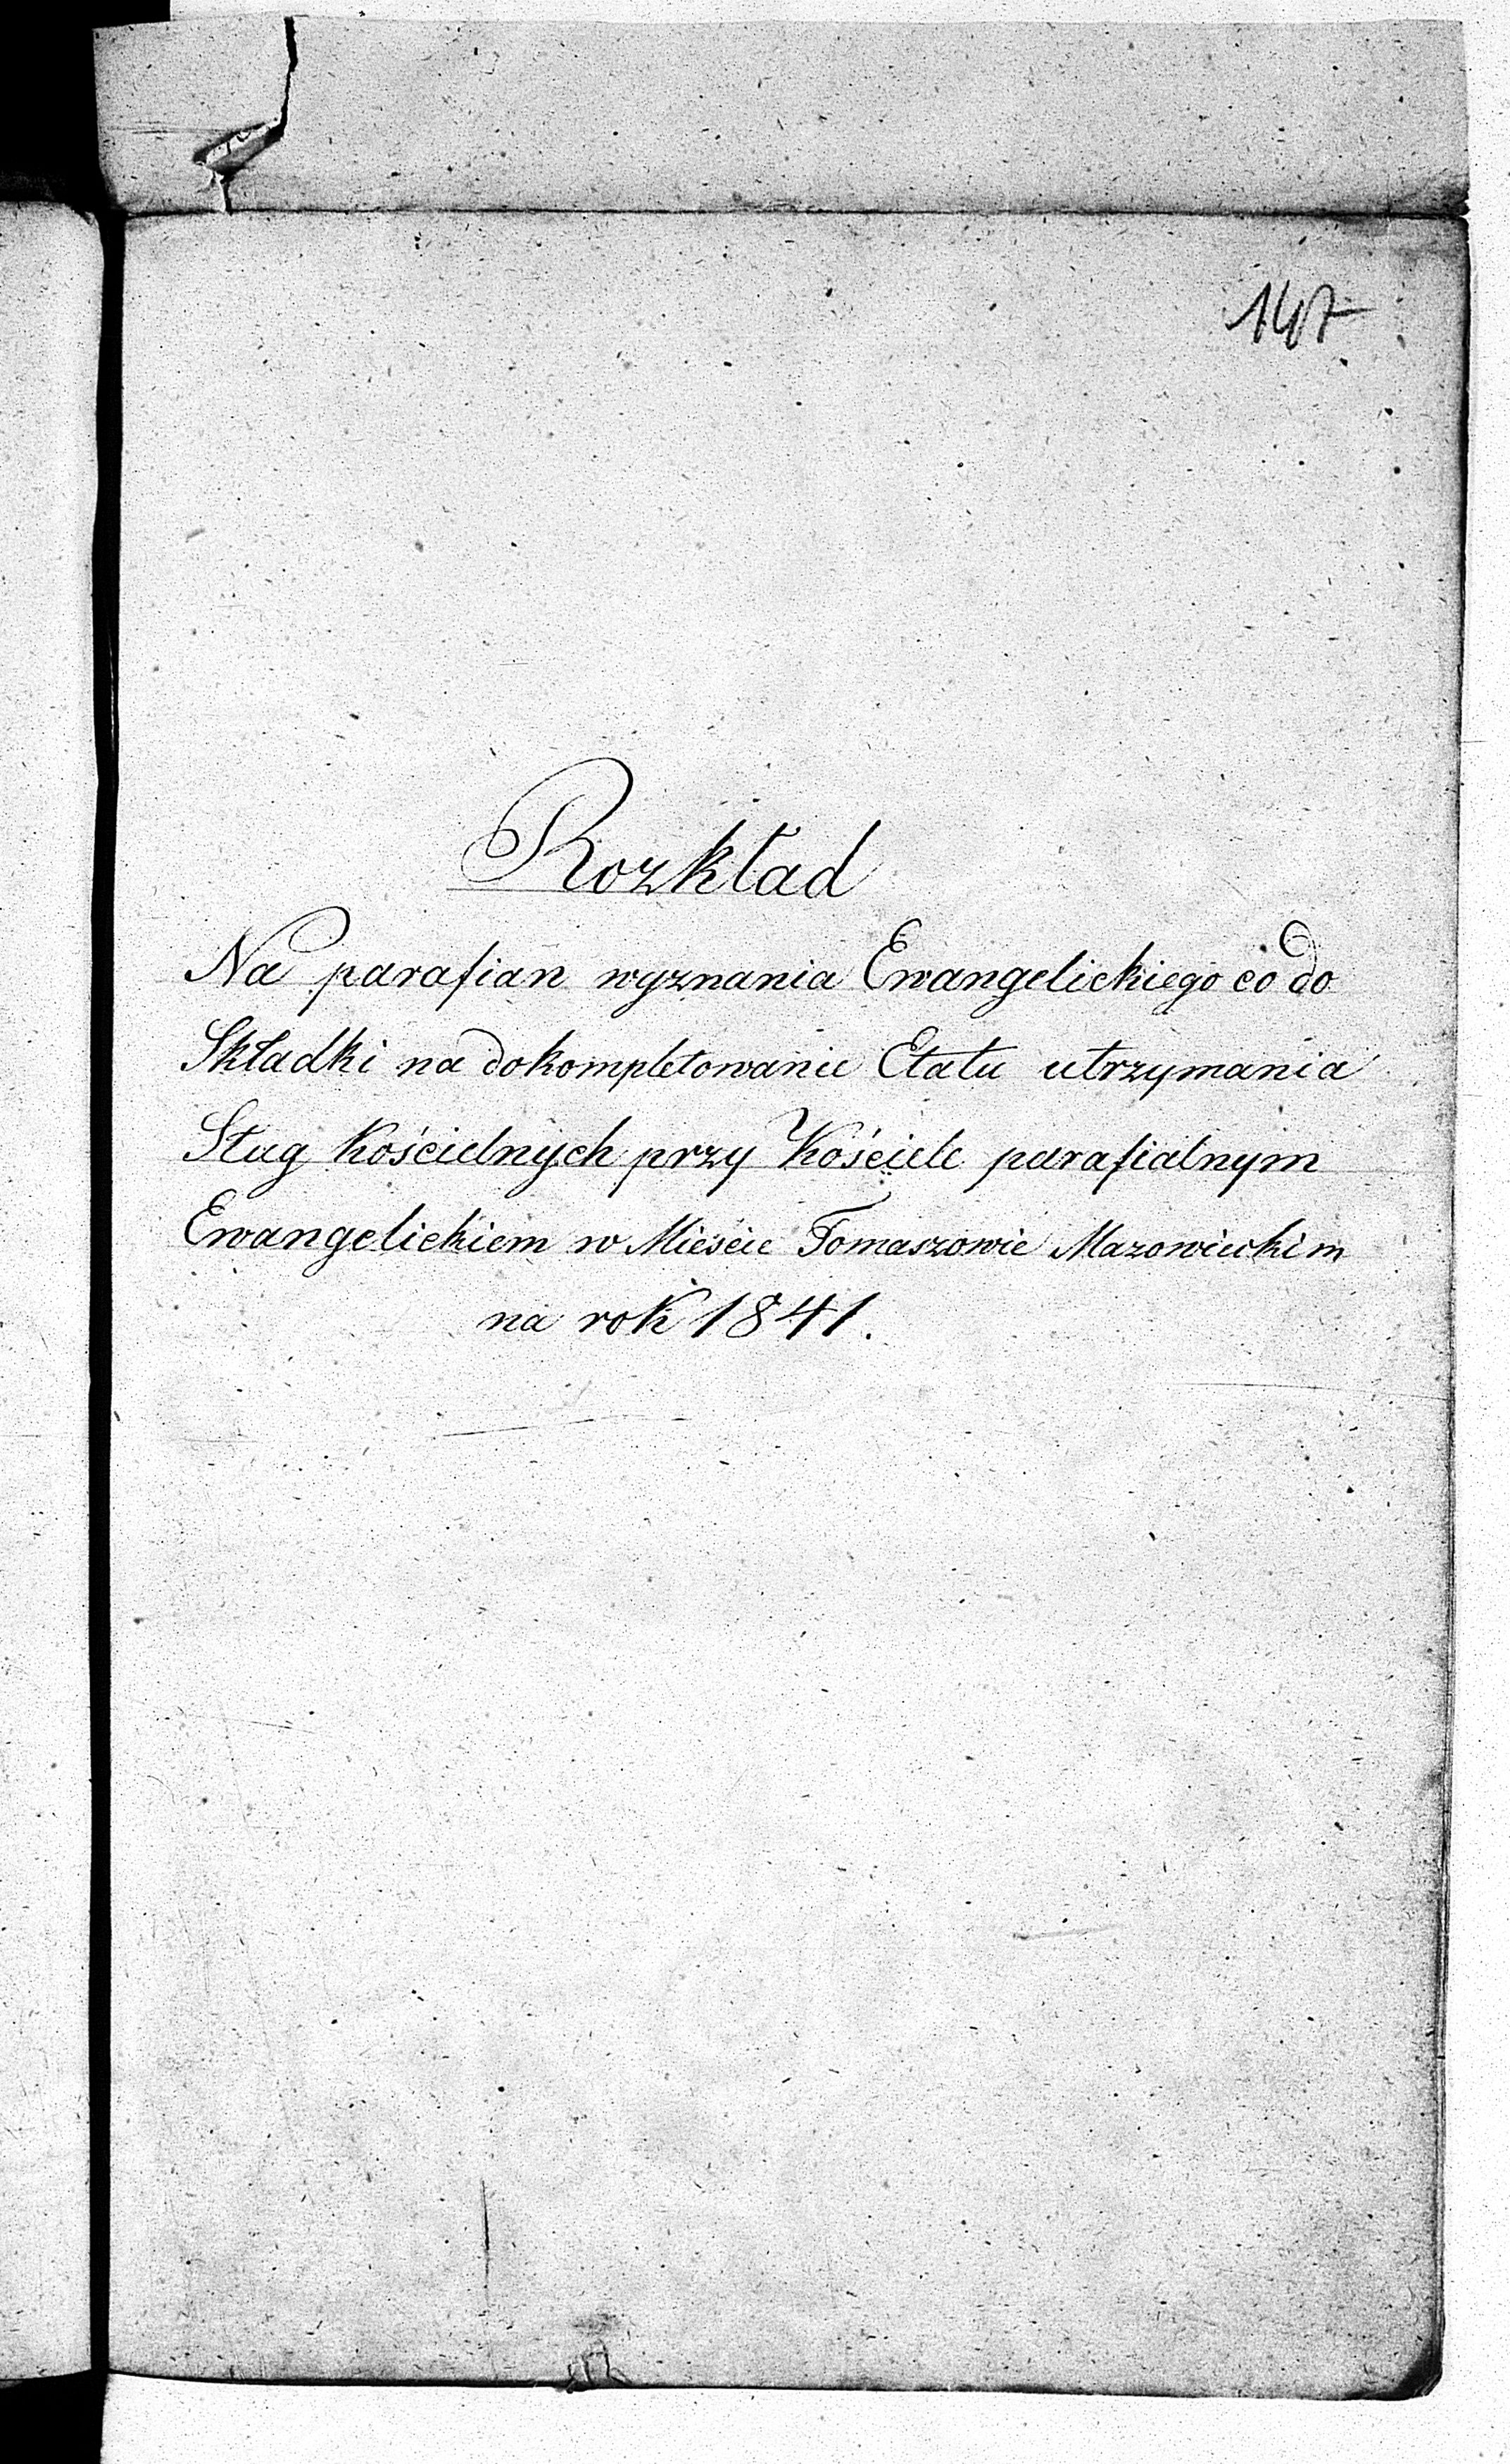 147
Rozkład
Na parafian wyznania Ewangelickiego co do
Składki na dokompletowanie Etatu utrzymania
Sług Kościelnych przy Kościele parafialnym
Ewangelickiem w Mieście Tomaszowie Mazowieckim
na rok 1841.